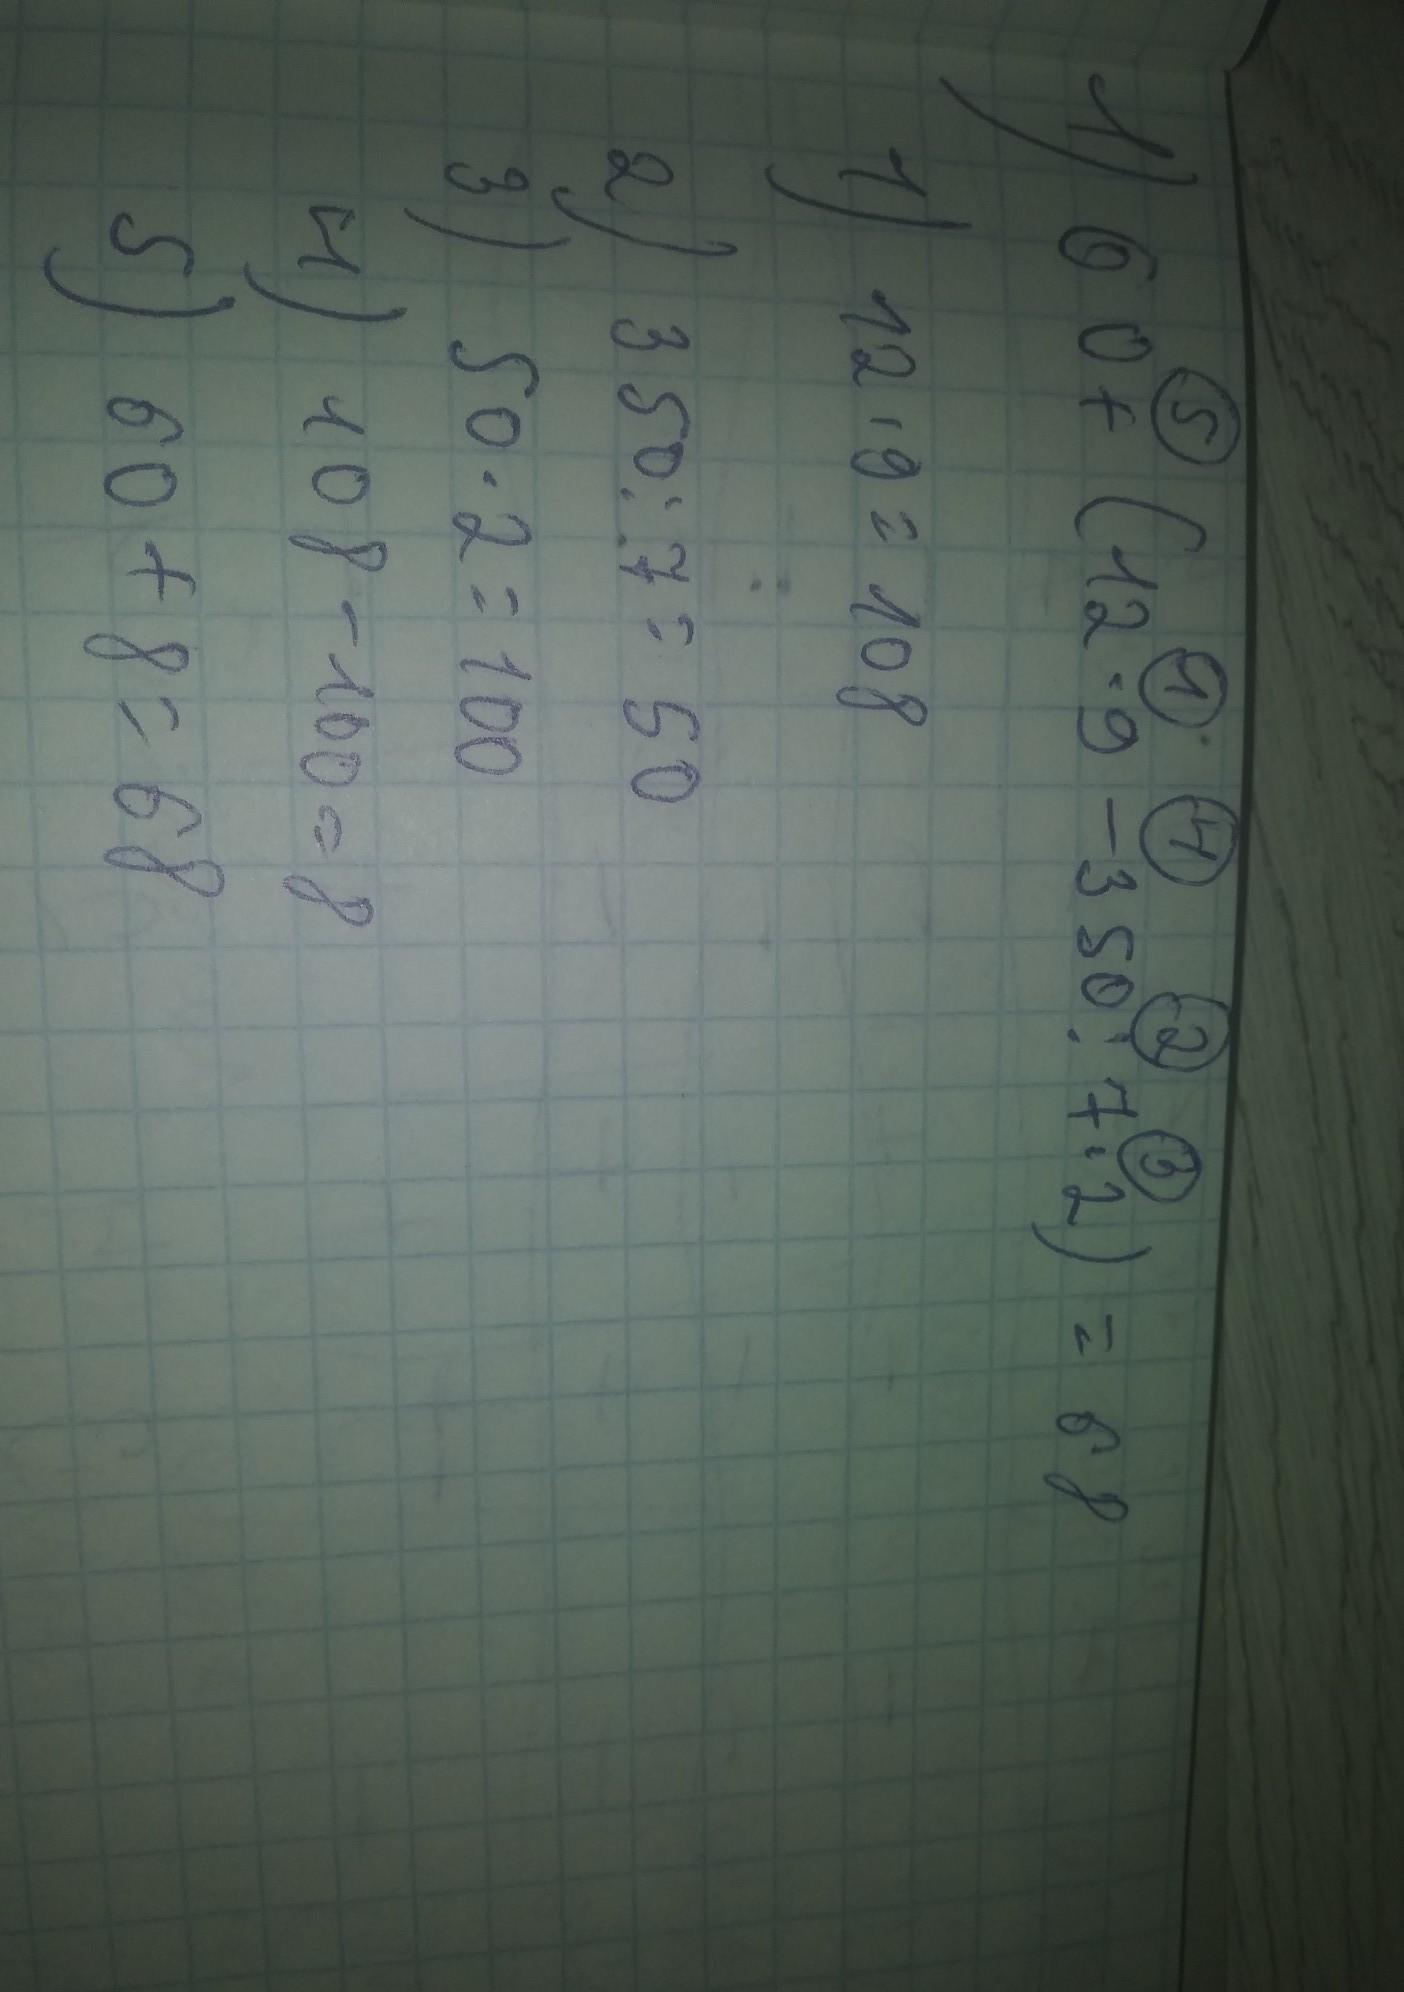 ⑤ ① ④ ② ③
1) 60+(12·9-350:7·2)=68
1) 12·9=108
2) 350:7=50
3) 50·2=100
4) 108-100=8
5) 60+8=68